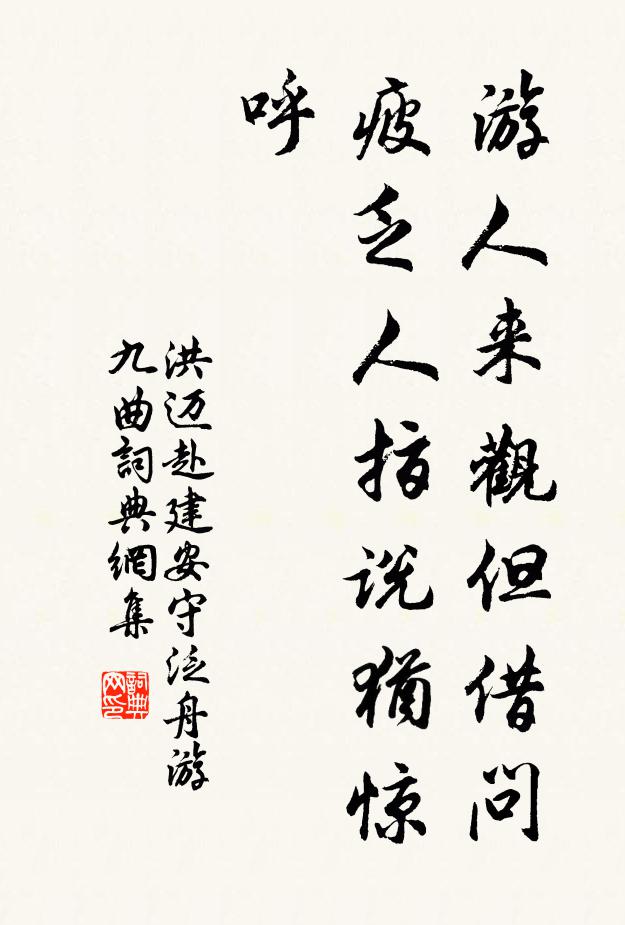 游人来觀但借問
疲乏人指说猶惊
呼
洪迈赴建安守泛舟游
九曲詞典網集
詞典网印